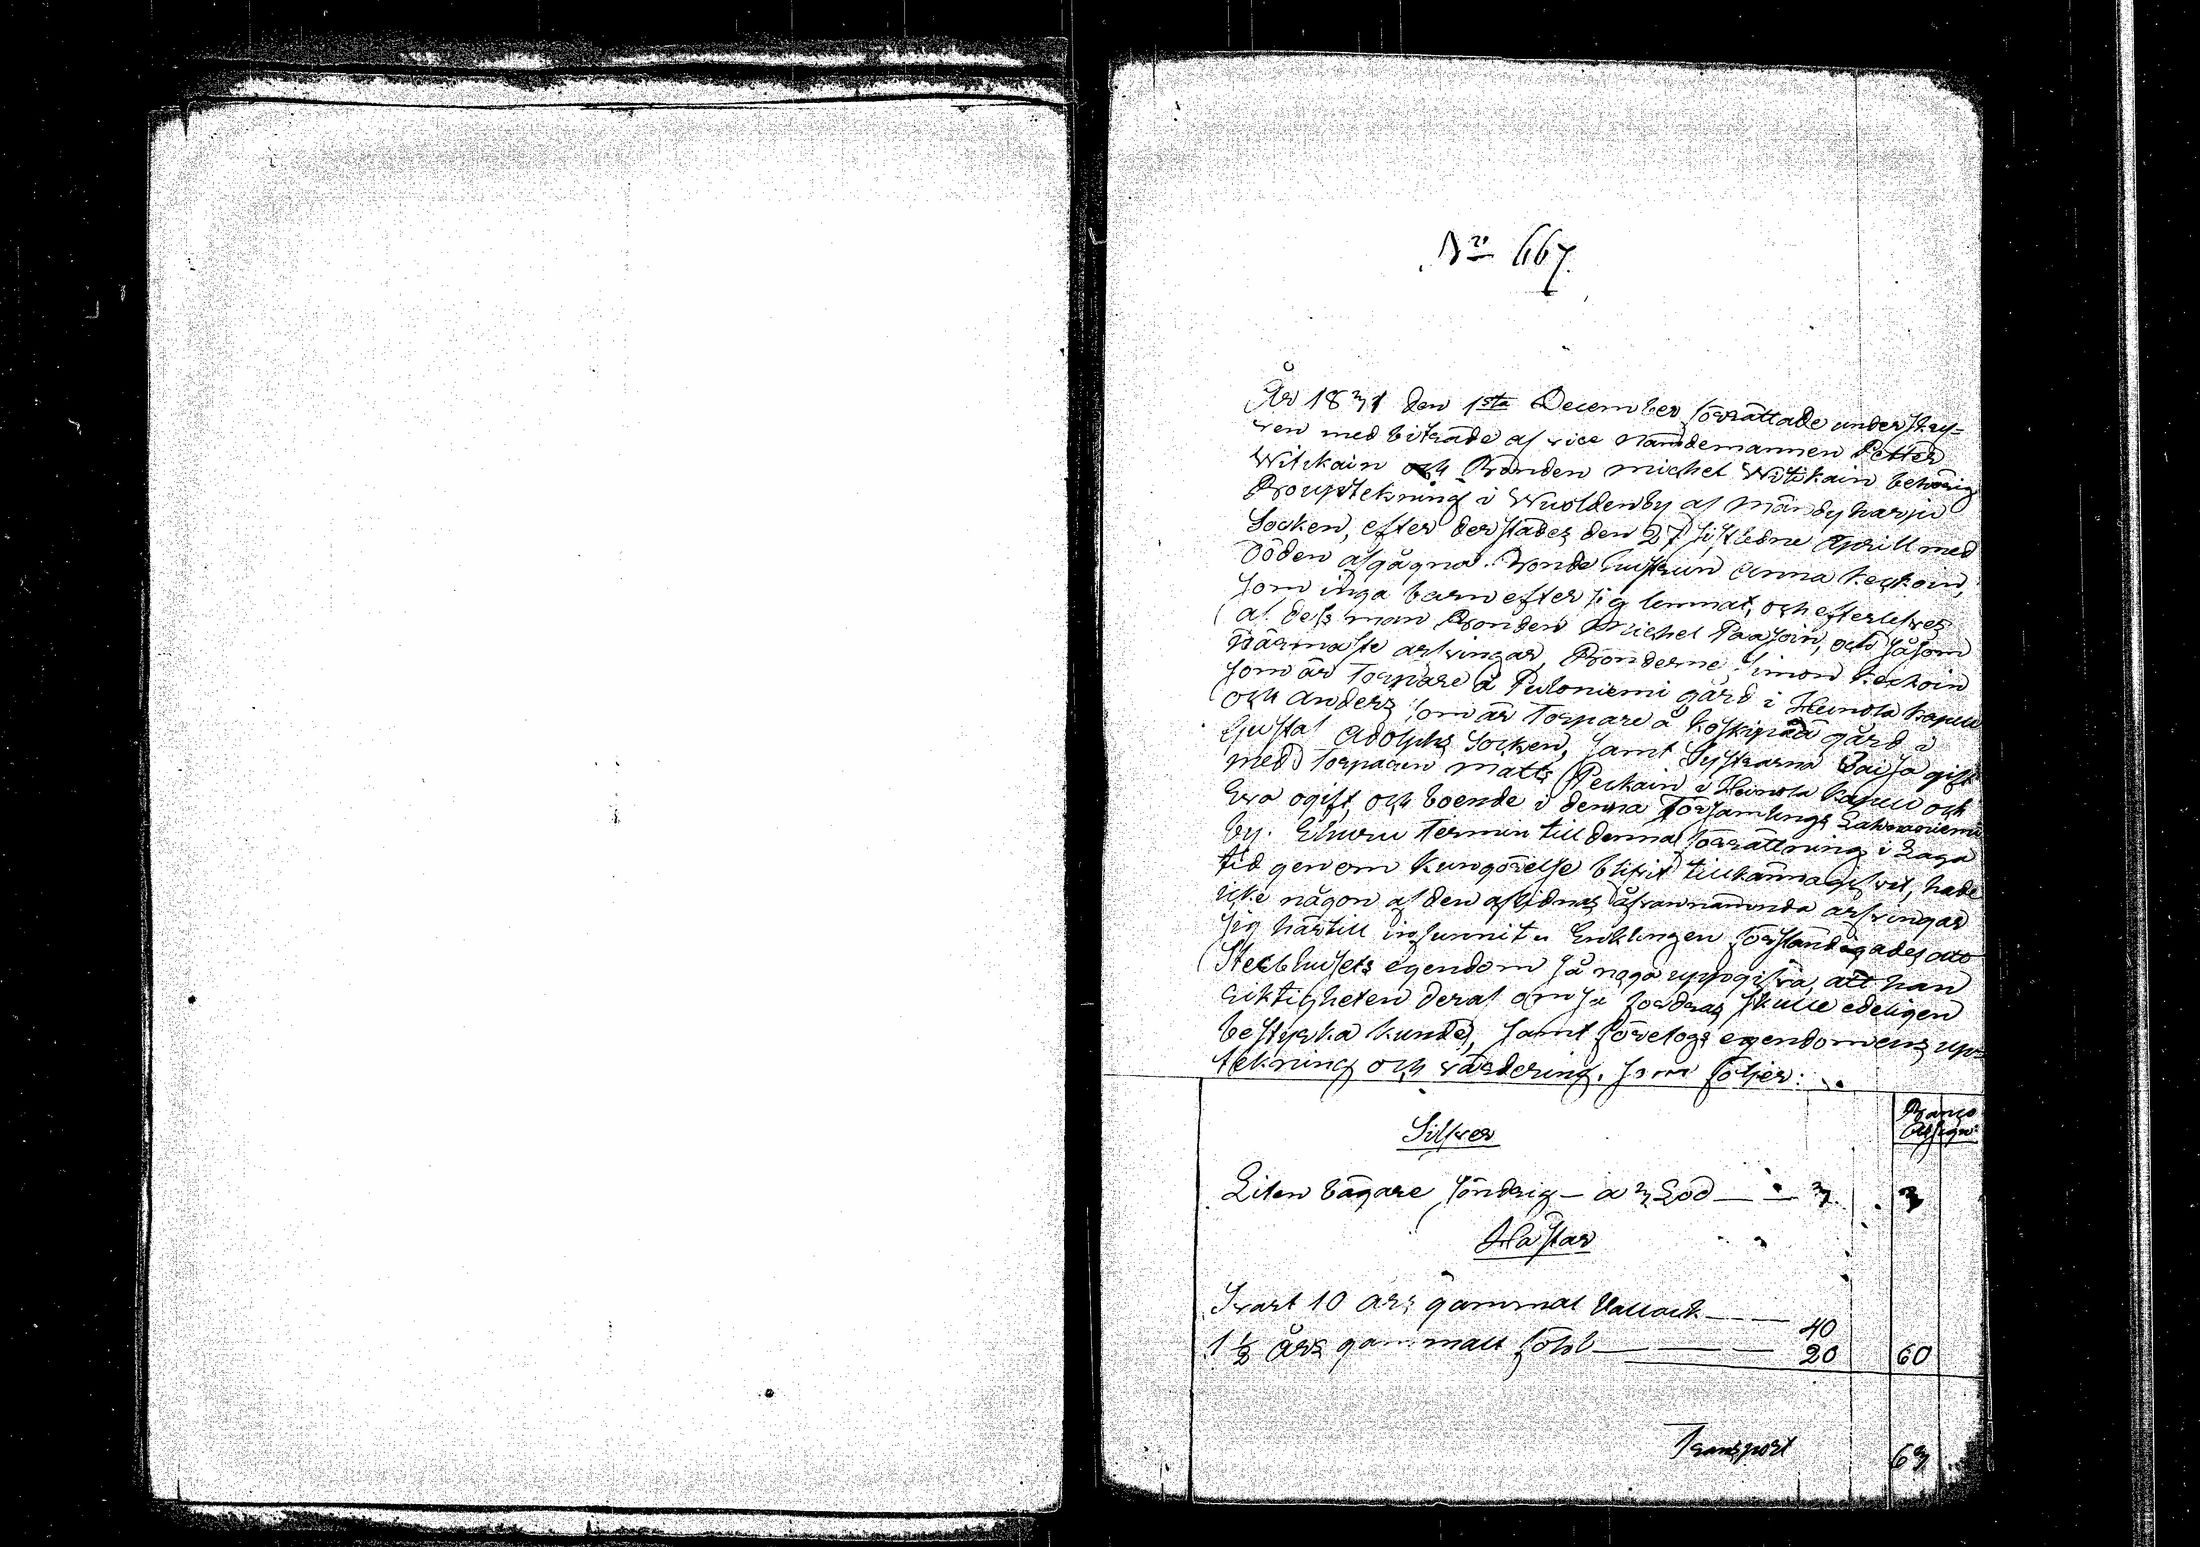 No 667.
År 1831 den 1sta December förrättade underskref-
ven med biträde af vice Nämdemannen Petter
Witikain och Bonden Michel Witikain behörig
Bouptekning i Wuoldenby af Mändyharju
Socken, efter derstädes den 27 sistledne Aprill med
döden afgågna Bonde hustrun Anna Keckoin,
som inga barn efter sig lemnat, och efterlefves
af dess man Bonden Michel Paasoin, och såsom
närmaste arfvingar, Bröderne Simon Keckoin
som är Torpare å Puloniemi gård i Heinola Kapell
och Anders som är Torpare å Koskipää gård i
Gustaf Adolphs Socken, samt Systrarna Caisa gift
med Torparen Matts Peckain i Heinola Kapell och
Eva ogift, och boende i denna Församlings
by. Ehuru Termin till denna förrättning i Laga
tid genom kungörelse blifvit tillkännagifvet, hade
icke någon af den aflidnas åfvannämnda arfvingar
sig härtill infunnit. Enklingen förständigades att
Sterbhusets egendom så noga uppgifva, att han
riktigheten deraf om så fordras skulle edeligen
bestyrka kunde, samt företogs egendomens up-
tekning och värdering, som följer:
Banco
Assign:
Silfver
Liten bägare söndrig - a 3 Lod - 3. 3
Hästar
Svart 10 års gammal Vallack 40
1 1/2 Års gammalt föhl 20 60
Transport 63